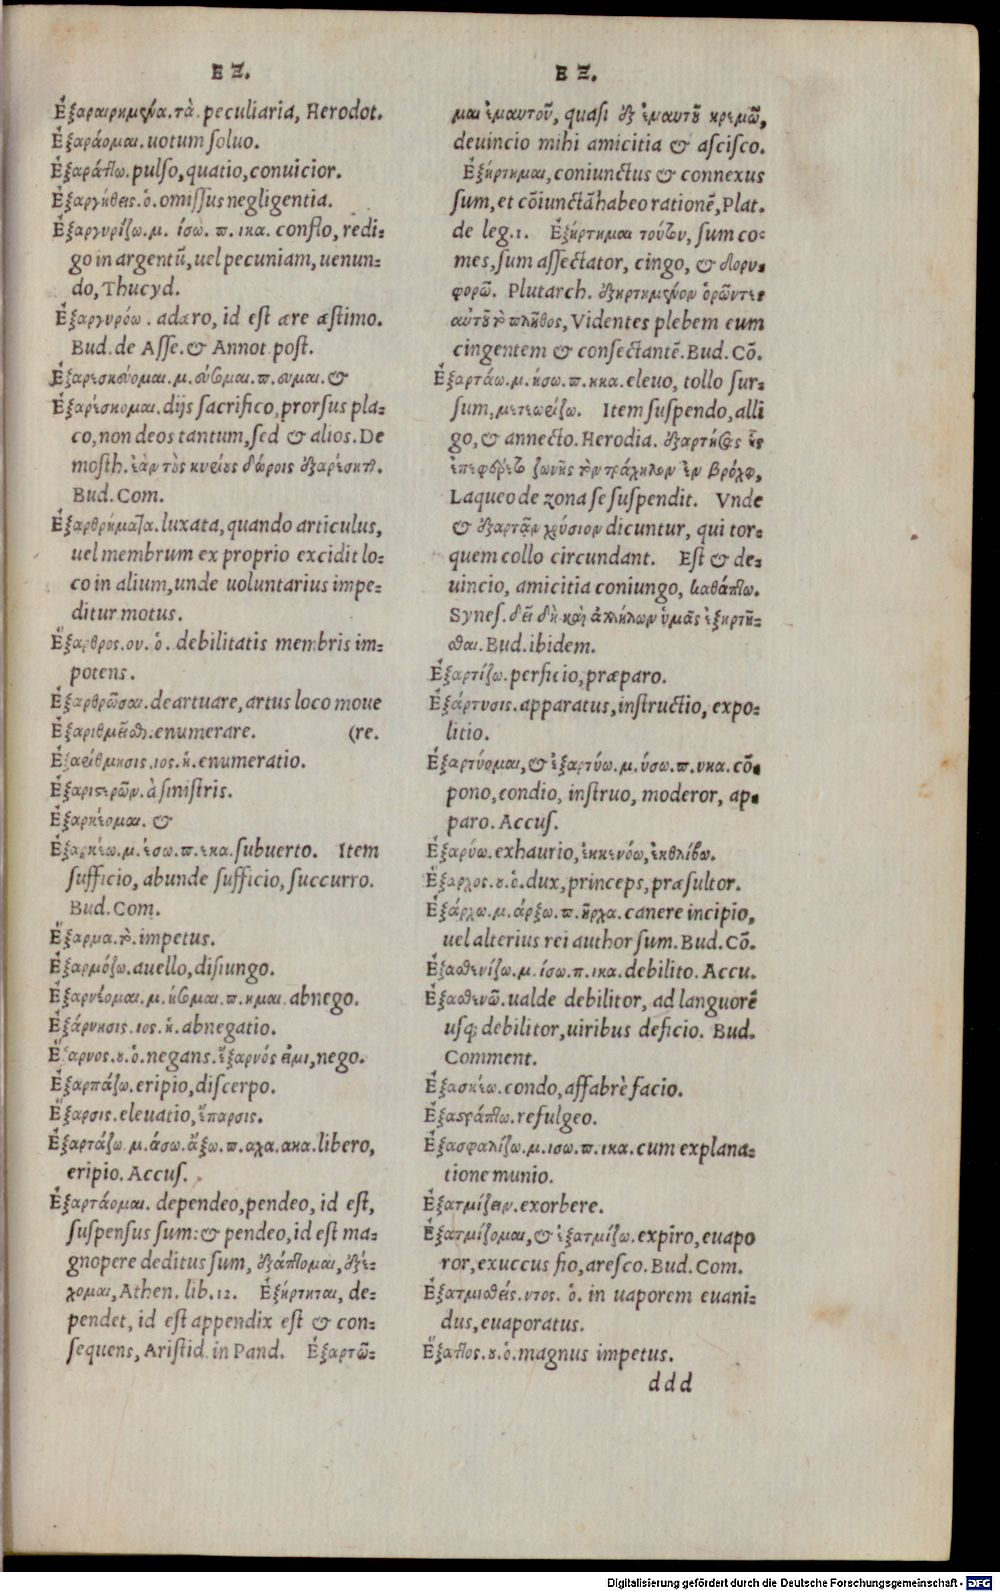 Ε Ξ.
Ἐξαραιρημένα. τὰ. peculiaria, Herodot.
Ἐξαράομαι. uotum soluo.
Ἐξαράττω. pulso, quatio, conuicior.
Ἐξαργήθεις. ὁ. omissus negligentia.
Ἐξαργυρίζω. μ. ίσω. π. ικα. conflo, redi-
go in argentũ, uel pecuniam, uenun-
do, Thucyd.
Ἐξαργυρόω. adæro, id est ære æstimo.
Bud. de Asse. & Annot. post.
Ἐξαρεσκεύομαι. μ. εύσομαι. π. ευμαι. &
Ἐξαρέσκομαι. dijs sacrifico, prorsus pla-
co, non deos tantum, sed & alios. De
mosth. ἐὰν τοὺς κυρίους δώροις ἐξαρέσηται.
Bud. Com.
Ἐξαρθρήματα. luxata, quando articulus,
uel membrum ex proprio excidit lo-
co in alium, unde uoluntarius impe-
ditur motus.
Ἔξαρθρος. ου. ὁ. debilitatis membris im-
potens.
Ἐξαρθρῶσαι. deartuare, artus loco moue
Ἐξαριθμεῖσθαι. enumerare. (re.
Ἐξαρίθμησις. ιος. ἡ. enumeratio.
Ἐξαριστερῶν. à sinistris.
Ἐξαρκέομαι. &
Ἐξαρκέω. μ. έσω. π. εκα. subuerto. Item
sufficio, abunde sufficio, succurro.
Bud. Com.
Ἔξαρμα. τὸ. impetus.
Ἐξαρμόζω. auello, disiungo.
Ἐξαρνέομαι. μ. ήσομαι. π. ημαι. abnego.
Ἐξάρνησις. ιος. ἡ. abnegatio.
Ἔξαρνος. ου. ὁ. negans. ἔξαρνός εἰμι, nego.
Ἐξαρπάζω. eripio, discerpo.
Ἔξαρσις. eleuatio, ἔπαρσις.
Ἐξαρτάζω. μ. άσω. άξω. π. αχα. ακα. libero,
eripio. Accus.
Ἐξαρτάομαι. dependeo, pendeo, id est,
suspensus sum: & pendeo, id est ma-
gnopere deditus sum, ἐξάπτομαι, ἐξέ-
χομαι, Athen. lib. 12. Ἐξήρτηται, de-
pendet, id est appendix est & con-
sequens, Aristid. in Pand. Ἐξαρτῶ-
Ε Ξ.
μαι ἐμαυτοῦ, quasi ἐξ ἐμαυτοῦ κρεμῶ,
deuincio mihi amicitia & ascisco.
Ἐξήρτημαι, coniunctus & connexus
sum, et cõiunctã habeo rationẽ, Plat.
de leg. 1. Ἐξήρτημαι τούτου, sum co-
mes, sum assectator, cingo, & δορυ-
φορῶ. Plutarch. ἐξηρτημένον ὁρῶντες
αὐτοῦ τὸ πλῆθος, Videntes plebem eum
cingentem & consectantẽ. Bud. Cõ.
Ἐξαρτάω. μ. ήσω. π. ηκα. eleuo, tollo sur-
sum, μετεωρίζω. Item suspendo, alli
go, & annecto. Herodia. ἐξαρτήσας ἧς
ἐπεφέρετο ζωνῆς τὸν τράχηλον ἐν βρόχῳ,
Laqueo de zona se suspendit. Vnde
& ἐξαρτᾷν χρύσιον dicuntur, qui tor-
quem collo circundant. Est & de-
uincio, amicitia coniungo, καθάπτω.
Synes. δεῖ δὴ καὶ ἀλλήλων ὑμᾶς ἐξηρτῆ-
σθαι. Bud. ibidem.
Ἐξαρτίζω. perficio, præparo.
Ἐξάρτυσις. apparatus, instructio, expo-
litio.
Ἐξαρτύομαι, & ἐξαρτύω. μ. ύσω. π. υκα. cõ-
pono, condio, instruo, moderor, ap-
paro. Accus.
Ἐξαρύω. exhaurio, ἐκκενόω, ἐκθλίβω.
Ἔξαρχος. ου. ὁ. dux, princeps, præsultor.
Ἐξάρχω. μ. άρξω. π. ῆρχα. canere incipio,
uel alterius rei author sum. Bud. Cõ.
Ἐξασθενίζω. μ. ίσω. π. ικα. debilito. Accu.
Ἐξασθενῶ. ualde debilitor, ad languorẽ
usq; debilitor, uiribus deficio. Bud.
Comment.
Ἐξασκέω. condo, affabrè facio.
Ἐξαστράπτω. refulgeo.
Ἐξασφαλίζω. μ. ισω. π. ικα. cum explana-
tione munio.
Ἐξατμίζειν. exorbere.
Ἐξατμίζομαι, & ἐξατμίζω. expiro, euapo
ror, exuccus fio, aresco. Bud. Com.
Ἐξατμισθείς. ντος. ὁ. in uaporem euani-
dus, euaporatus.
Ἔξαττος. ου. ὁ. magnus impetus.
ddd
Digitalisierung gefördert durch die Deutsche Forschungsgemeinschaft - DFG